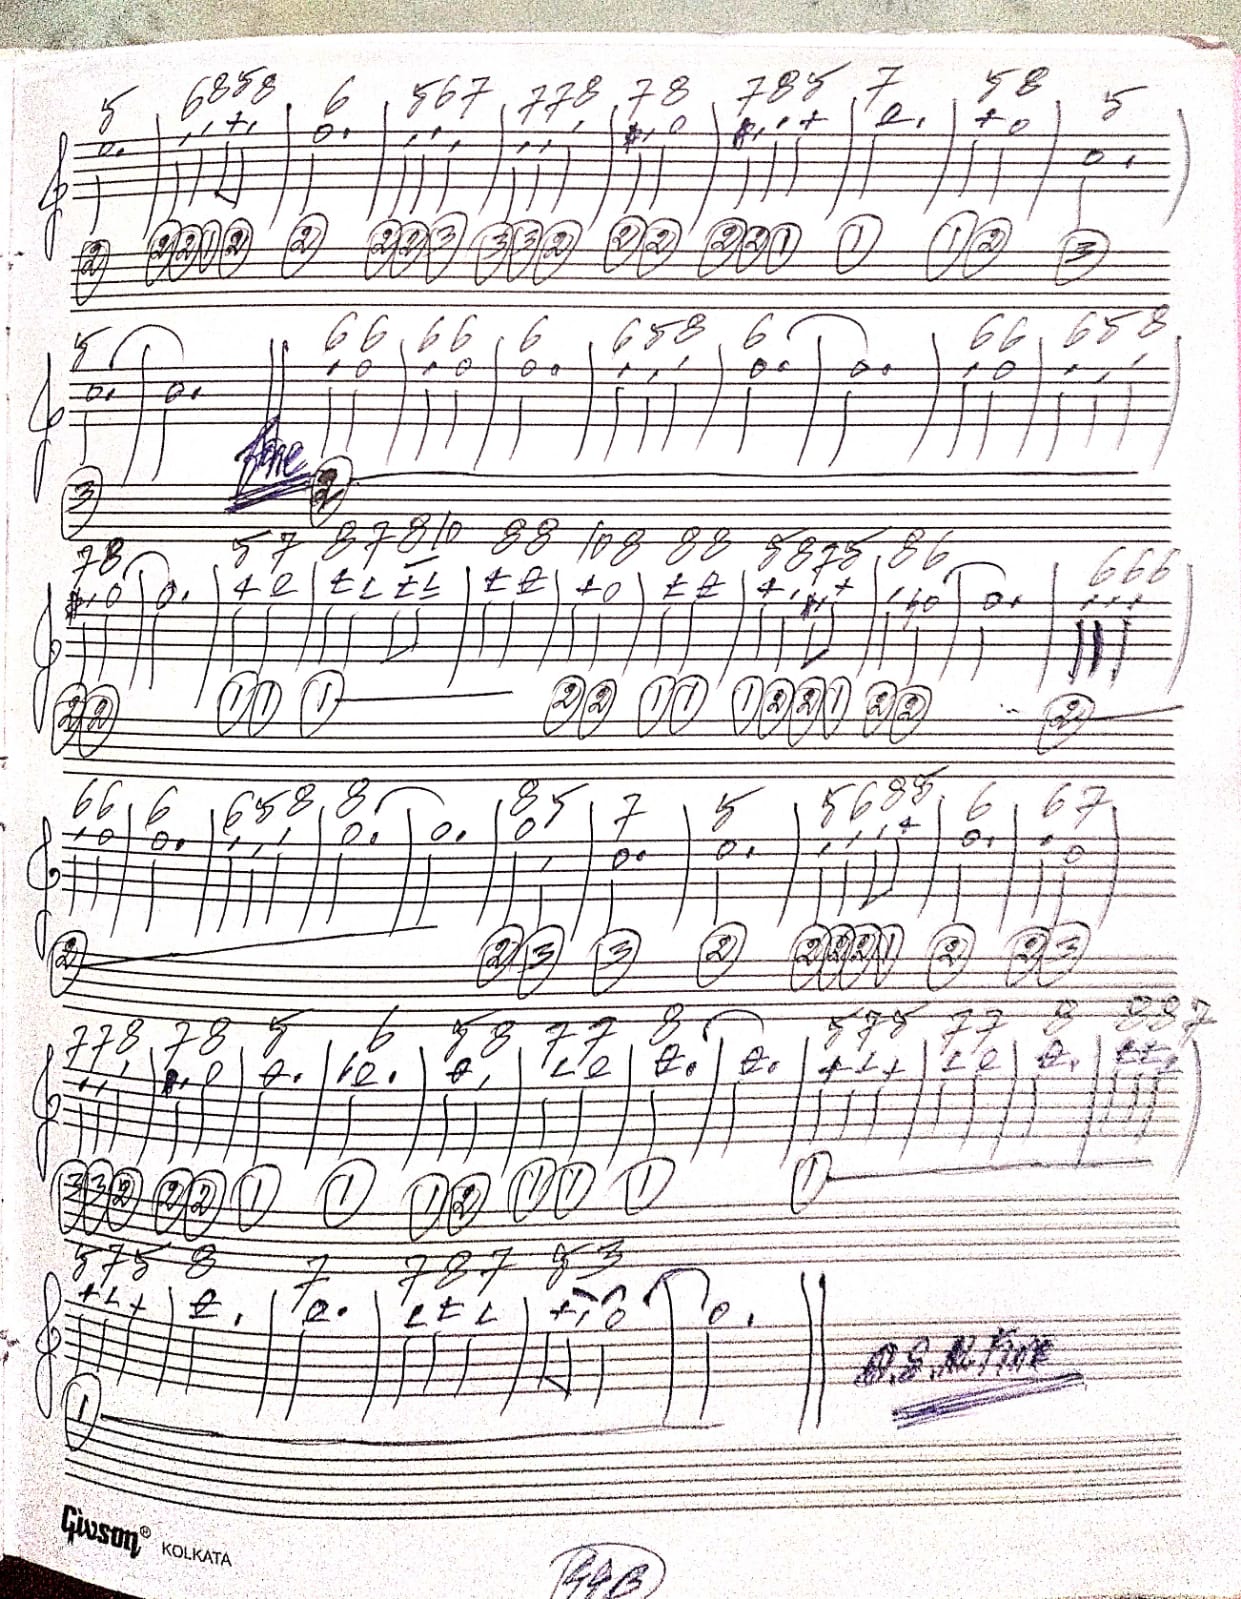 5 6858 6 567 778 78 785 7 58 5
2 2212 2 223 332 22 221 1 12 3
5 66 66 6 658 6 66 658
fine
3 2
78 57 87810 88 108 88 5875 86 666
22 11 1 22 11 1221 22 2
66 6 658 8 85 7 5 5685 6 67
2 23 3 2 2221 2 23
778 78 5 6 58 77 8 575 77 8 887
332 22 1 1 12 11 1 1
575 8 7 787 53
1
Givson® KOLKATA